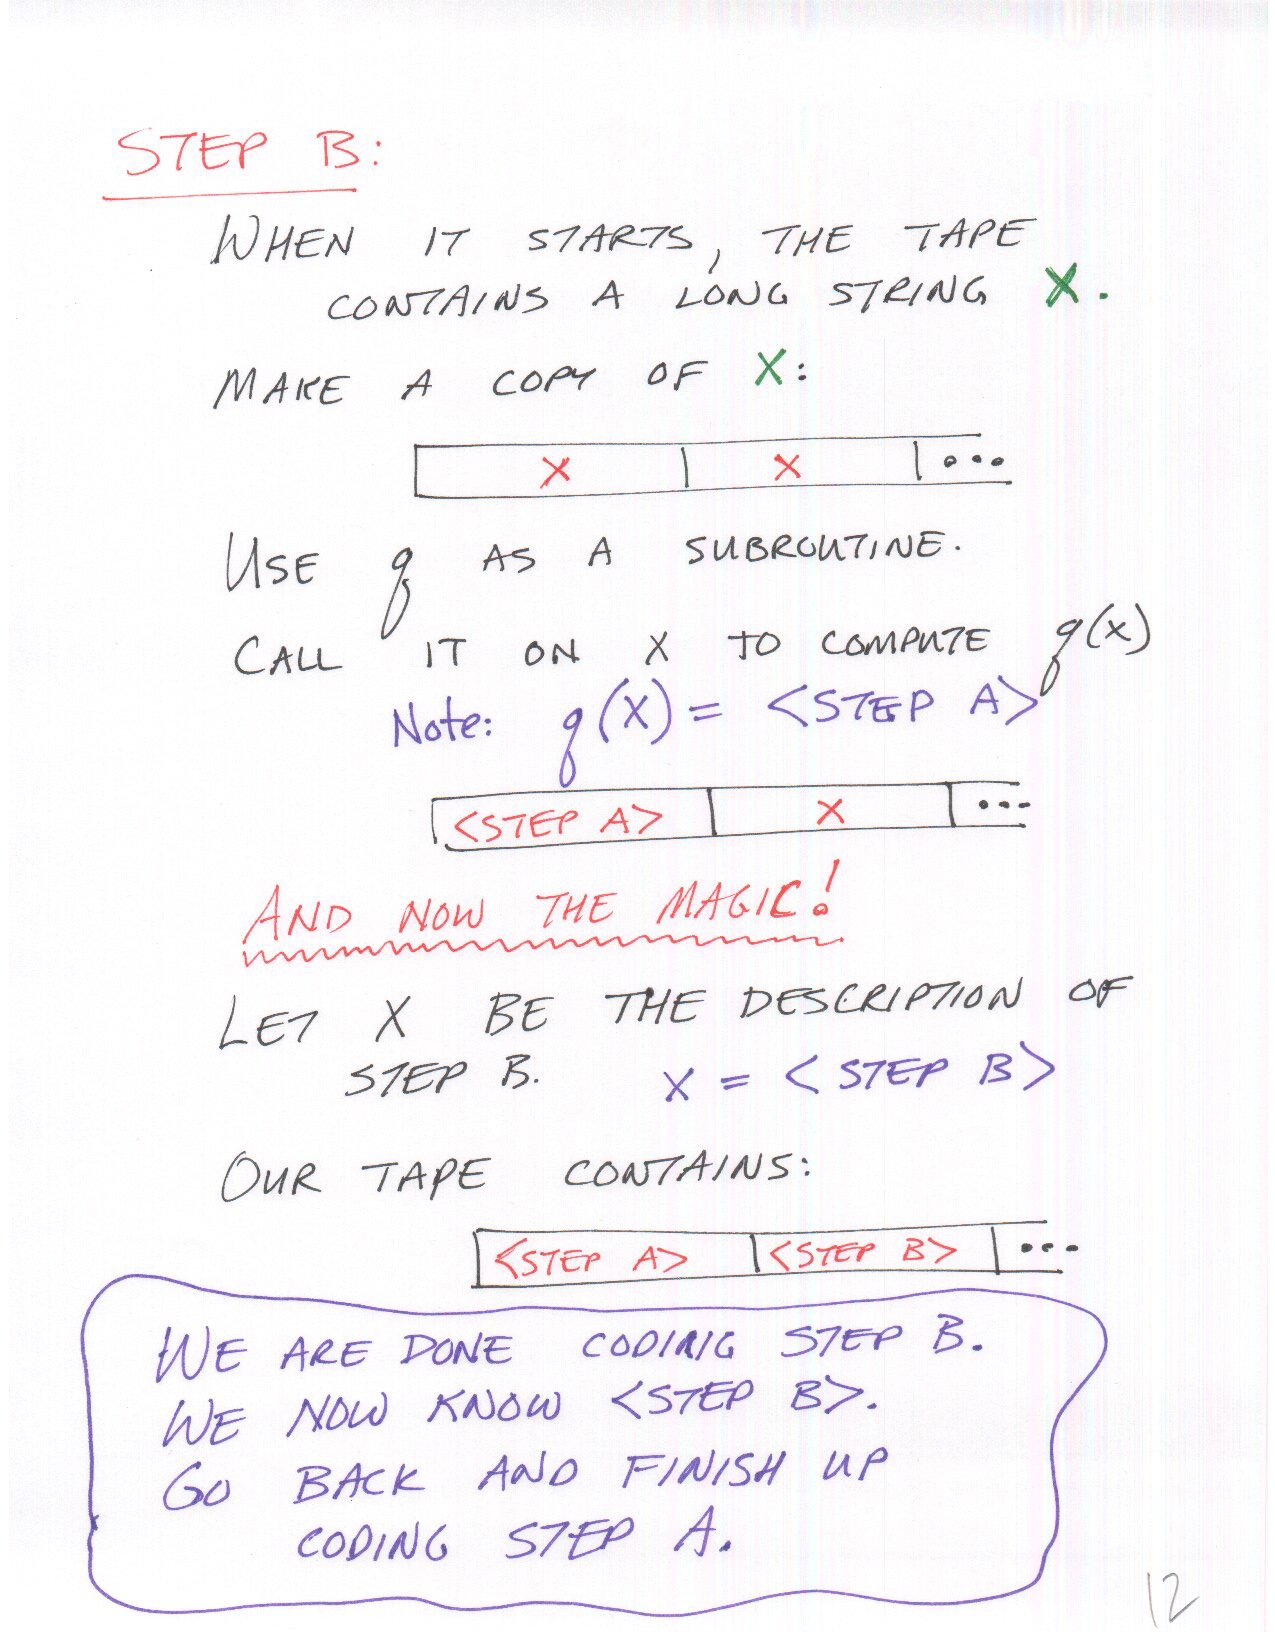 STEP B:
WHEN IT STARTS, THE TAPE
CONTAINS A LONG STRING X.
MAKE A COPY OF X:
X X ...
USE q AS A SUBROUTINE.
CALL IT ON X TO COMPUTE q(x)
Note: q(x) = <STEP A>
<STEP A> X ...
AND NOW THE MAGIC!
LET X BE THE DESCRIPTION OF
STEP B. X = <STEP B>
OUR TAPE CONTAINS:
<STEP A> <STEP B> ...
WE ARE DONE CODING STEP B.
WE NOW KNOW <STEP B>.
GO BACK AND FINISH UP
CODING STEP A.
12